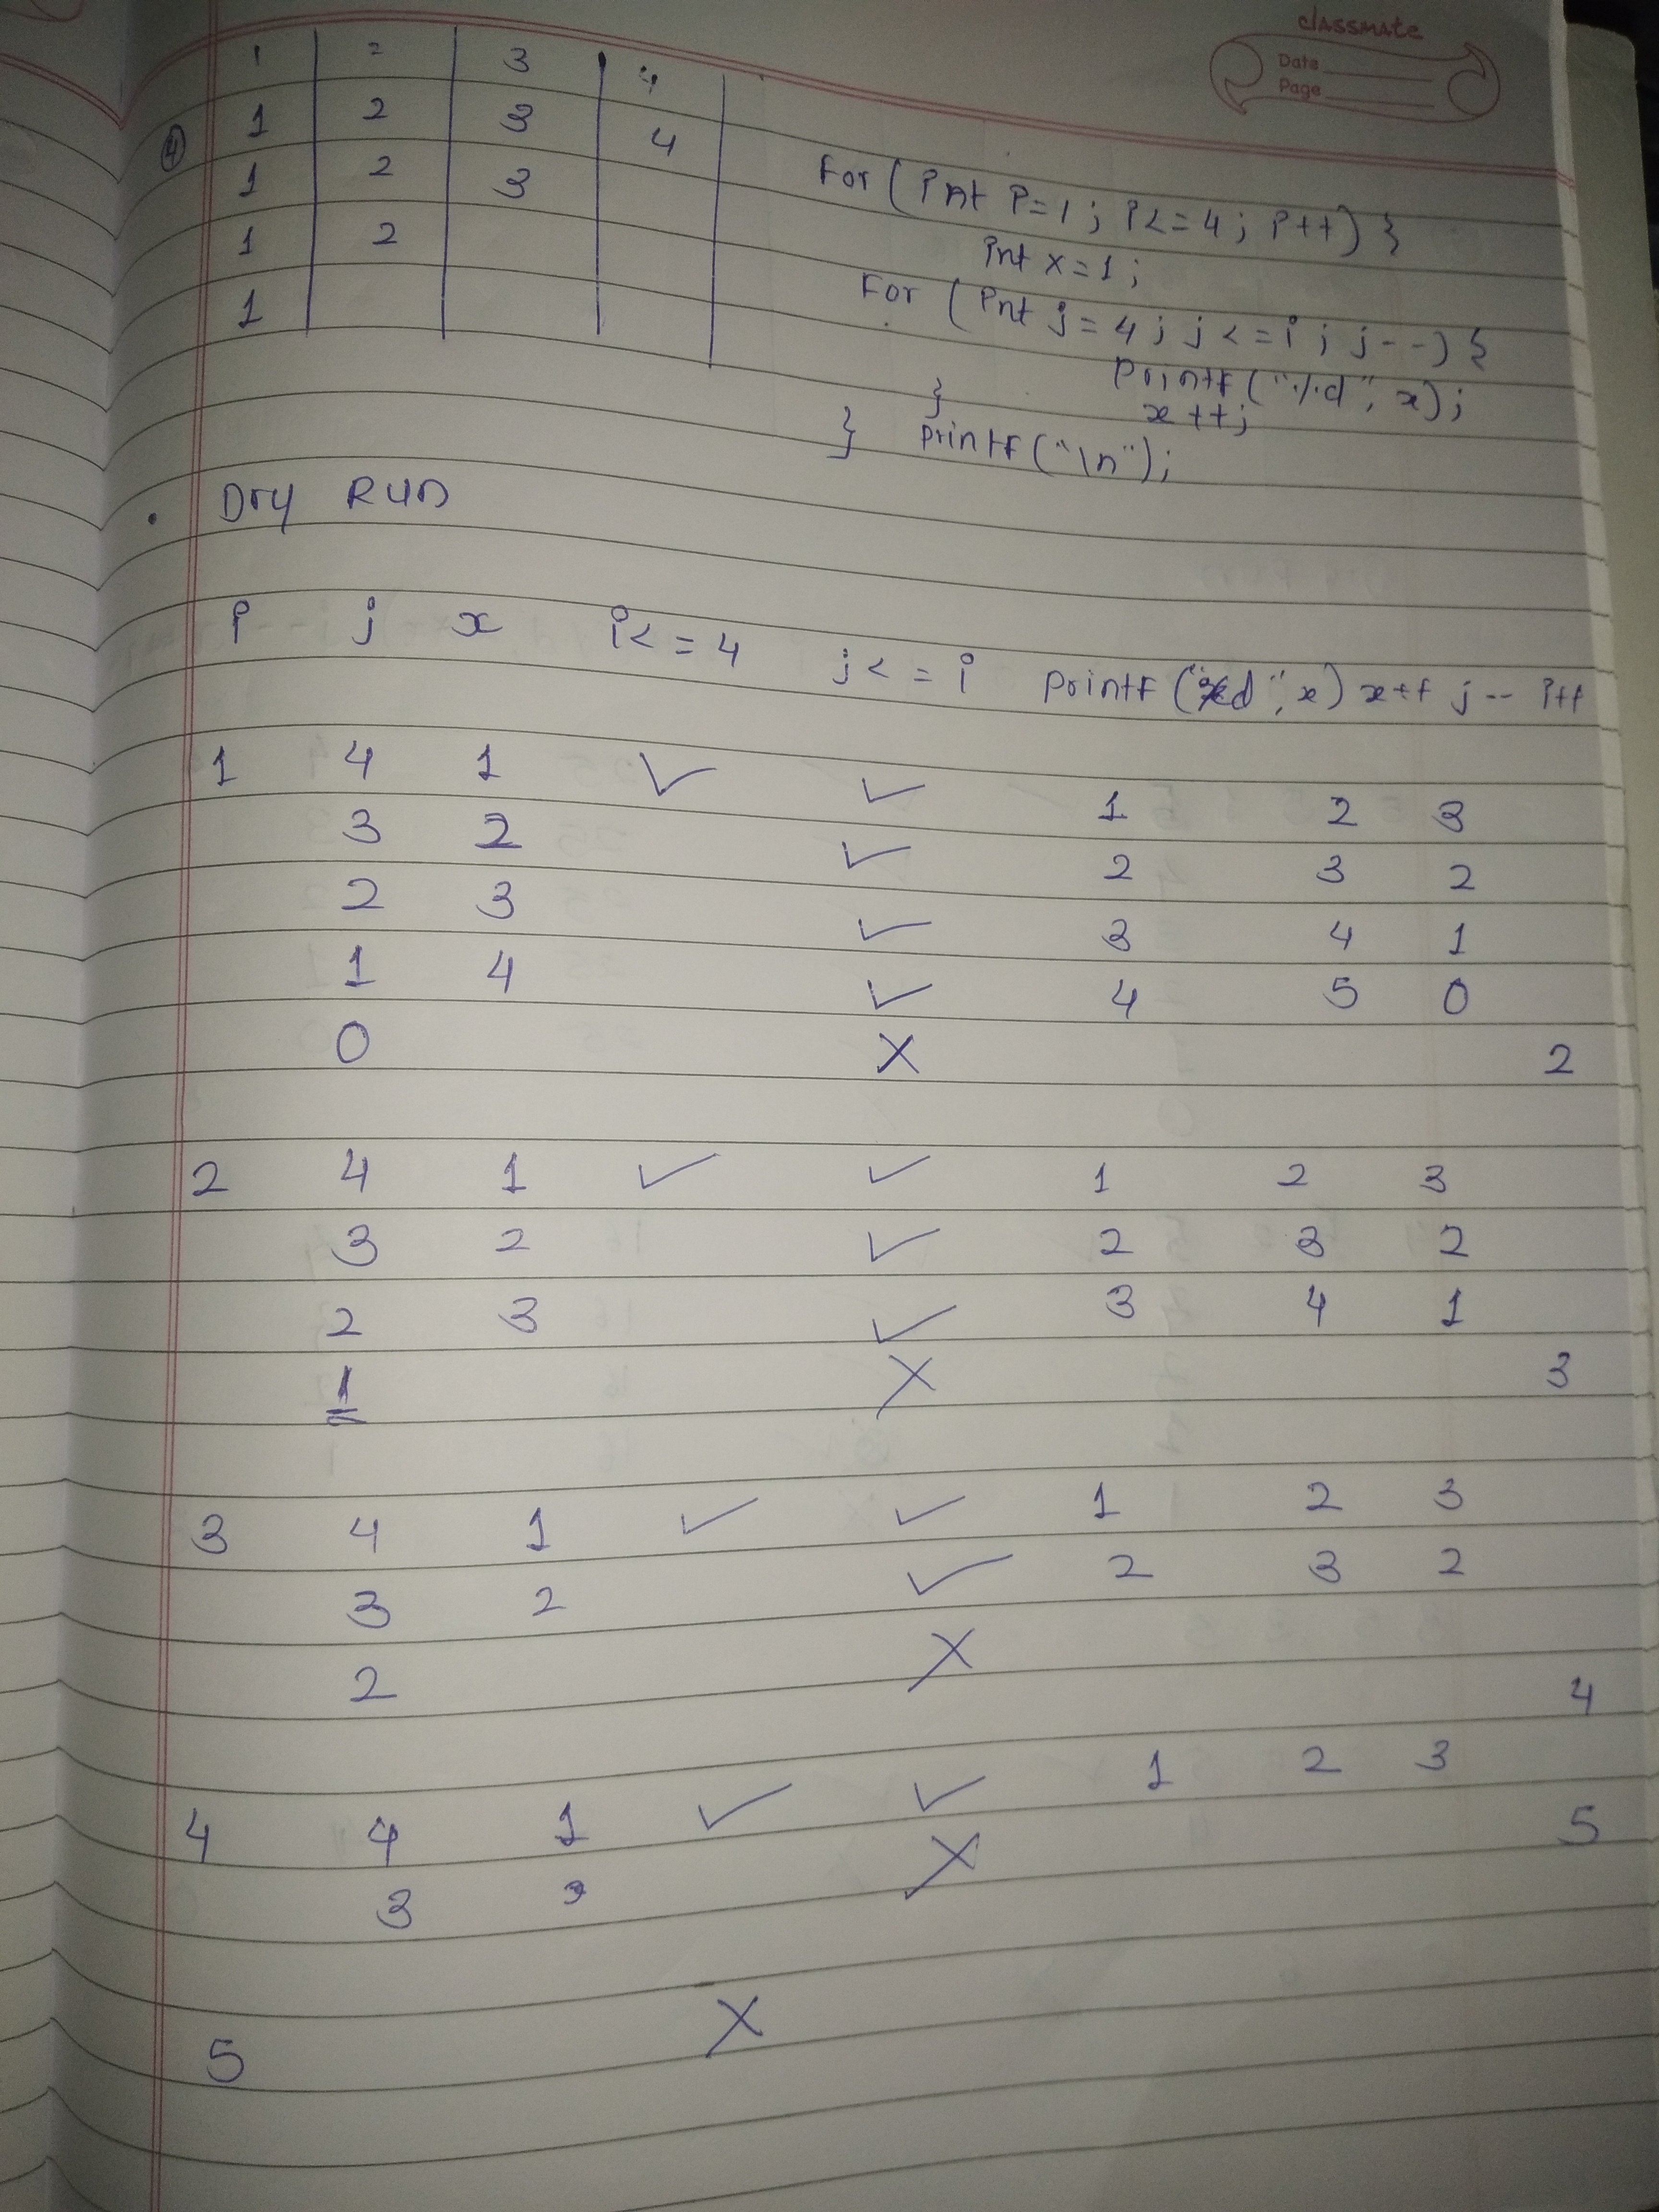 classmate
Date
Page
1 2 3 4
4 1 2 3 4
1 2 3
1 2
1
For (int i=1; i<=4; i++) }
int x=1;
For (int j=4; j<=i; j--) {
printf("%d", x);
x++;
}
} printf("\n");
• Dry RUN
i j x i<=4 j<=i printf("%d", x) x++ j-- i++
1 4 1 ✓ ✓ 1 2 3
3 2 ✓ 2 3 2
2 3 ✓ 3 4 1
1 4 ✓ 4 5 0
0 X 2
2 4 1 ✓ ✓ 1 2 3
3 2 ✓ 2 3 2
2 3 ✓ 3 4 1
1 X 3
3 4 1 ✓ ✓ 1 2 3
3 2 ✓ 2 3 2
2 X 4
4 4 1 ✓ ✓ 1 2 3
3 X 5
5 X